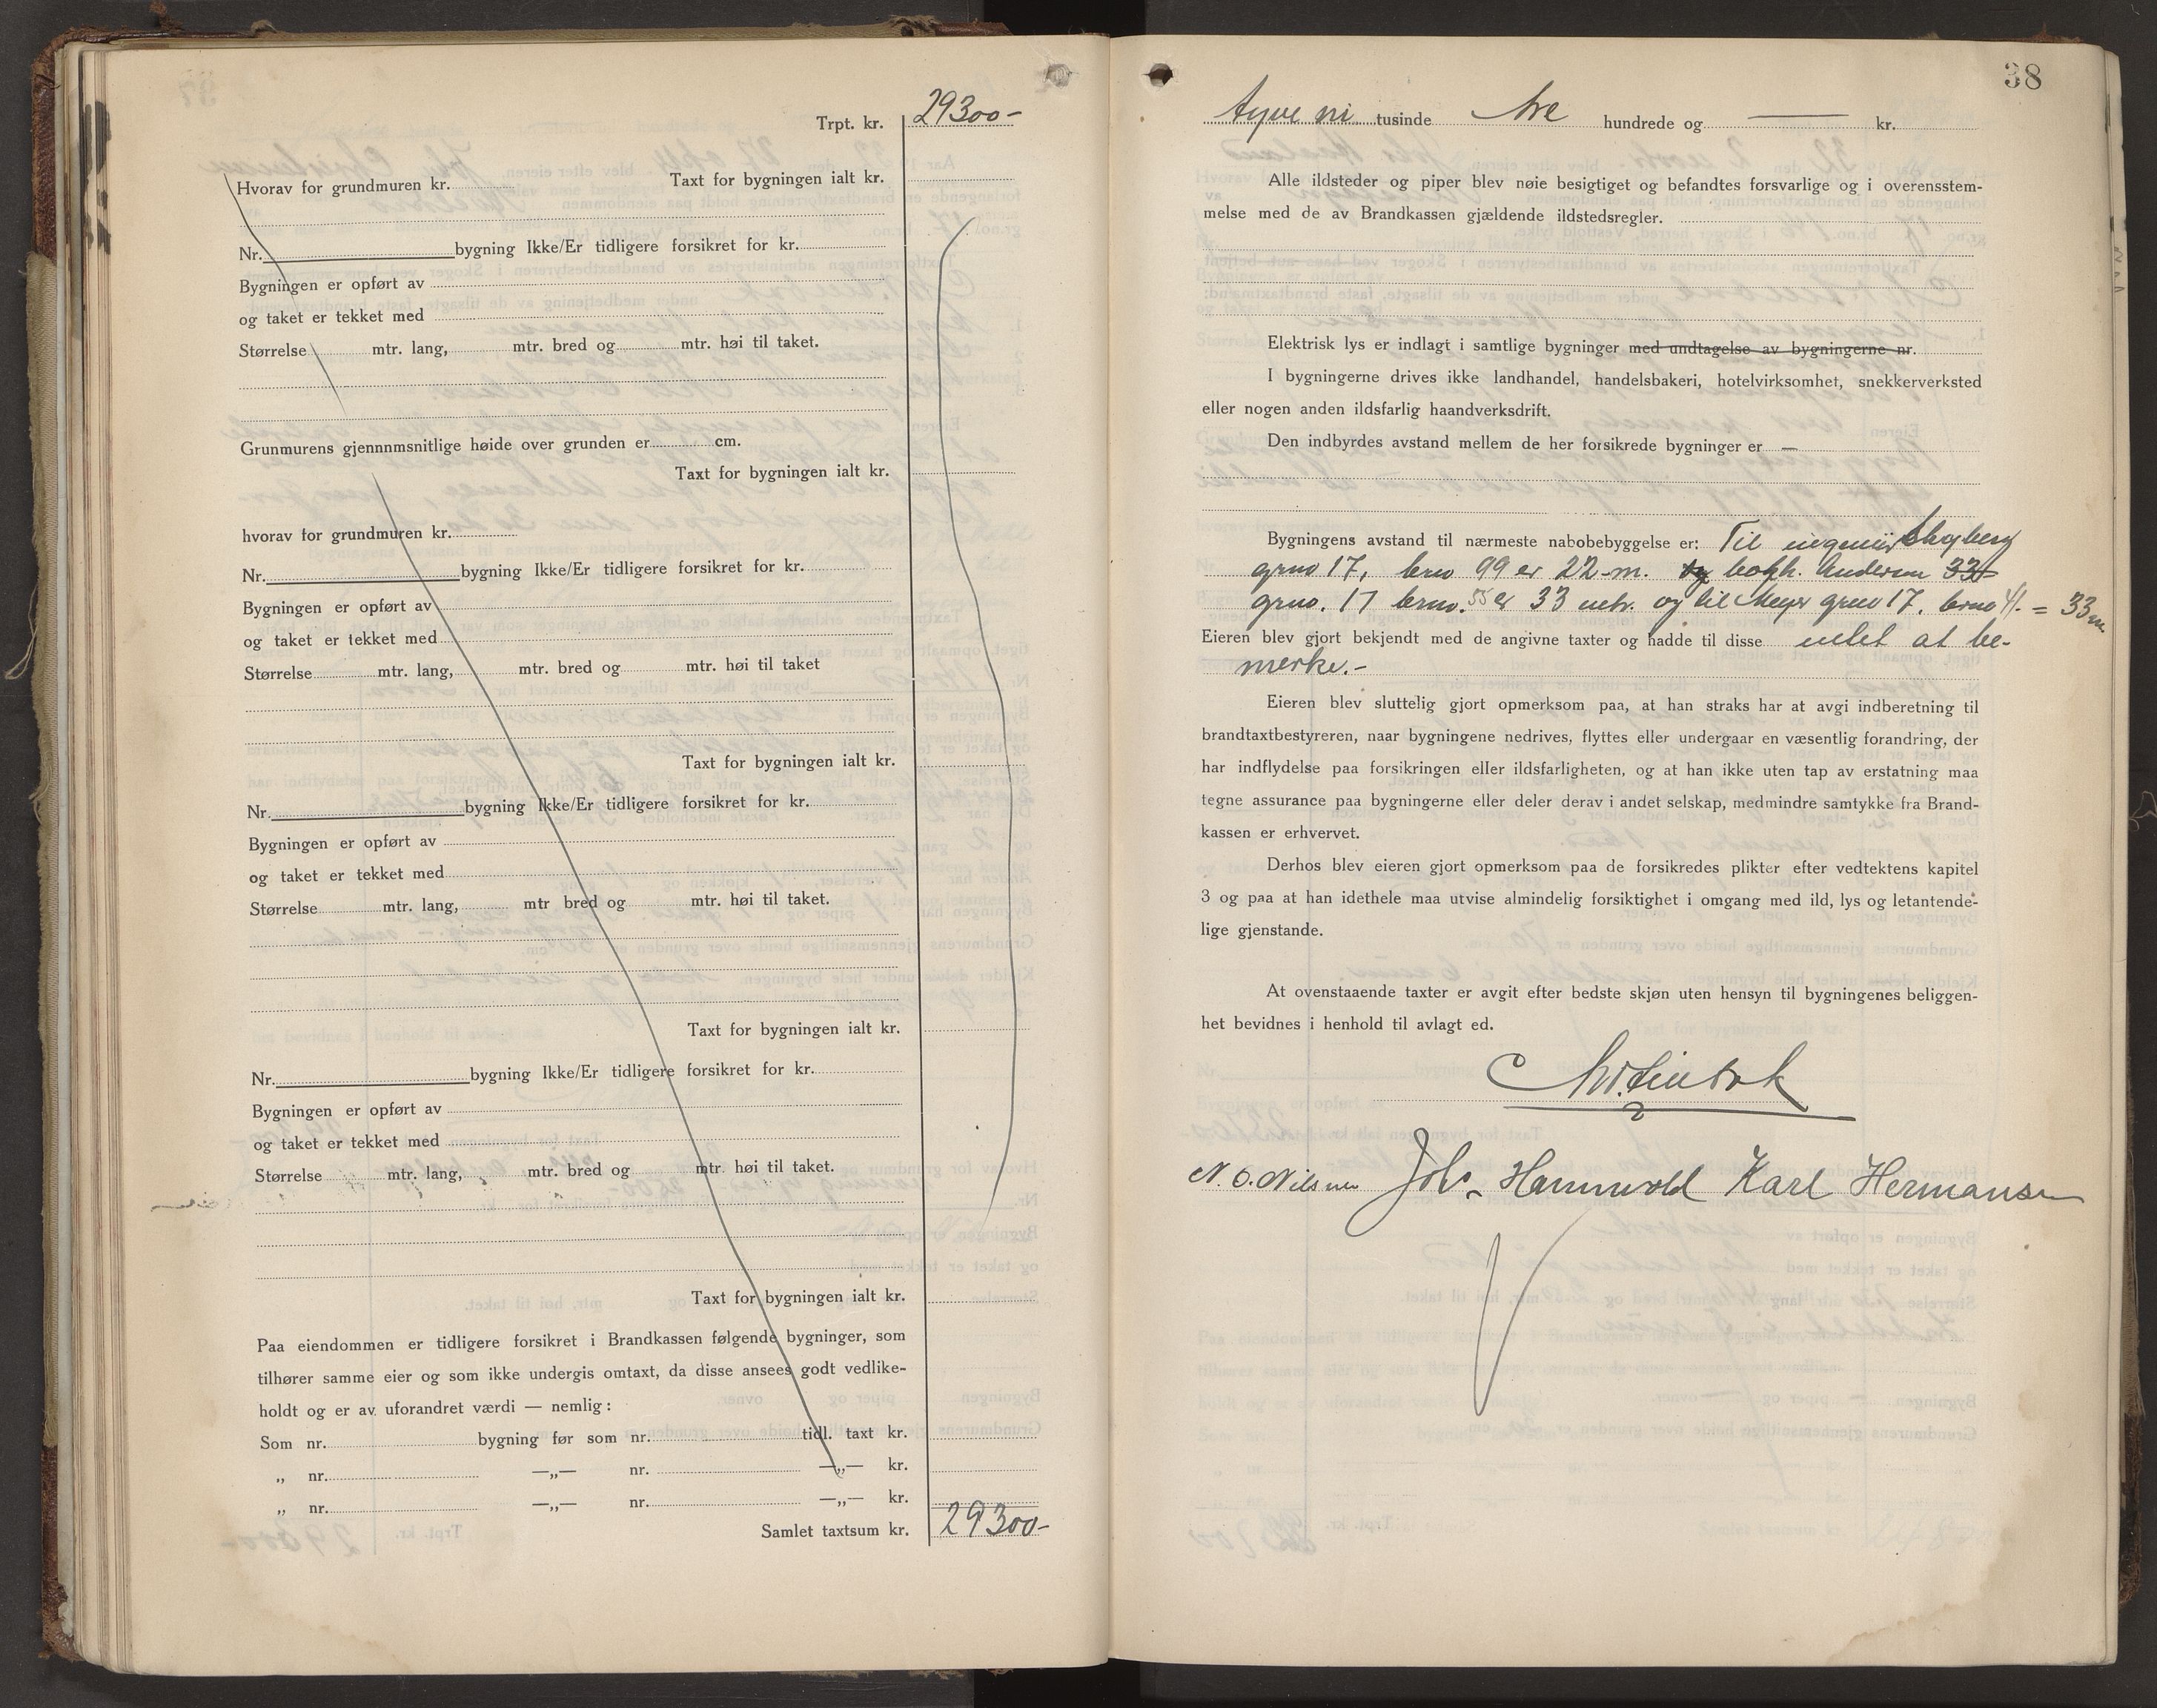 Trpt. kr. 29300-
Hvorav for grundmuren kr. Taxt for bygningen ialt kr.
Nr. bygning Ikke/Er tidligere forsikret for kr.
Bygningen er opført av
og taket er tekket med
Størrelse mtr. lang, mtr. bred og mtr. høi til taket.
Grunmurens gjennnmsnitlige høide over grunden er cm.
Taxt for bygningen ialt kr.
hvorav for grundmuren kr.
Nr. bygning Ikke/Er tidligere forsikret for kr.
Bygningen er opført av
og taket er tekket med
Størrelse mtr. lang, mtr. bred og mtr. høi til taket
Taxt for bygningen ialt kr.
Nr. bygning Ikke/Er tidligere forsikret for kr.
Bygningen er opført av
og taket er tekket med
Størrelse mtr. lang, mtr bred og mtr. høi til taket.
Taxt for bygningen ialt kr.
Nr. bygning Ikke/Er tidligere forsikret for kr.
Bygningen er opført av
og taket er tekket med
Størrelse mtr. lang, mtr. bred og mtr. høi til taket.
Taxt for bygningen ialt kr.
Paa eiendommen er tidligere forsikret i Brandkassen følgende bygninger, som
tilhører samme eier og som ikke undergis omtaxt, da disse ansees godt vedlike-
holdt og er av uforandret værdi — nemlig:
Som nr. bygning før som nr. tidl. taxt kr.
„ nr. —„— nr. —„— kr.
„ nr. —„— nr. —„— kr.
Samlet taxtsum kr. 29300-
38
tyve ni tusinde tre hundrede og — kr.
Alle ildsteder og piper blev nøie besigtiget og befandtes forsvarlige og i overensstem-
melse med de av Brandkassen gjældende ildstedsregler.
Elektrisk lys er indlagt i samtlige bygninger med undtagelse av bygningerne nr.
I bygningerne drives ikke landhandel, handelsbakeri, hotelvirksomhet, snekkerverksted
eller nogen anden ildsfarlig haandverksdrift.
Den indbyrdes avstand mellem de her forsikrede bygninger er —
Bygningens avstand til nærmeste nabobebyggelse er: Til ingeniør
grno 17, brno 99 er 22 m. og bokh. Andersen 33
grno. 17 brno. 55 er 33 mtr. og til Meyer grno 17. brno 41. = 33 m
Eieren blev gjort bekjendt med de angivne taxter og hadde til disse intet at be-
merke.-
Eieren blev sluttelig gjort opmerksom paa, at han straks har at avgi indberetning til
brandtaxtbestyreren, naar bygningene nedrives, flyttes eller undergaar en væsentlig forandring, der
har indflydelse paa forsikringen eller ildsfarligheten, og at han ikke uten tap av erstatning maa
tegne assurance paa bygningerne eller deler derav i andet selskap, medmindre samtykke fra Brand-
kassen er erhvervet.
Derhos blev eieren gjort opmerksom paa de forsikredes plikter efter vedtektens kapitel
3 og paa at han idethele maa utvise almindelig forsiktighet i omgang med ild, lys og letantende-
lige gjenstande.
At ovenstaaende taxter er avgit efter bedste skjøn uten hensyn til bygningenes beliggen-
het bevidnes i henhold til avlagt ed.
N. O. Nilsen Joh. Hamnvold Karl Hermansen